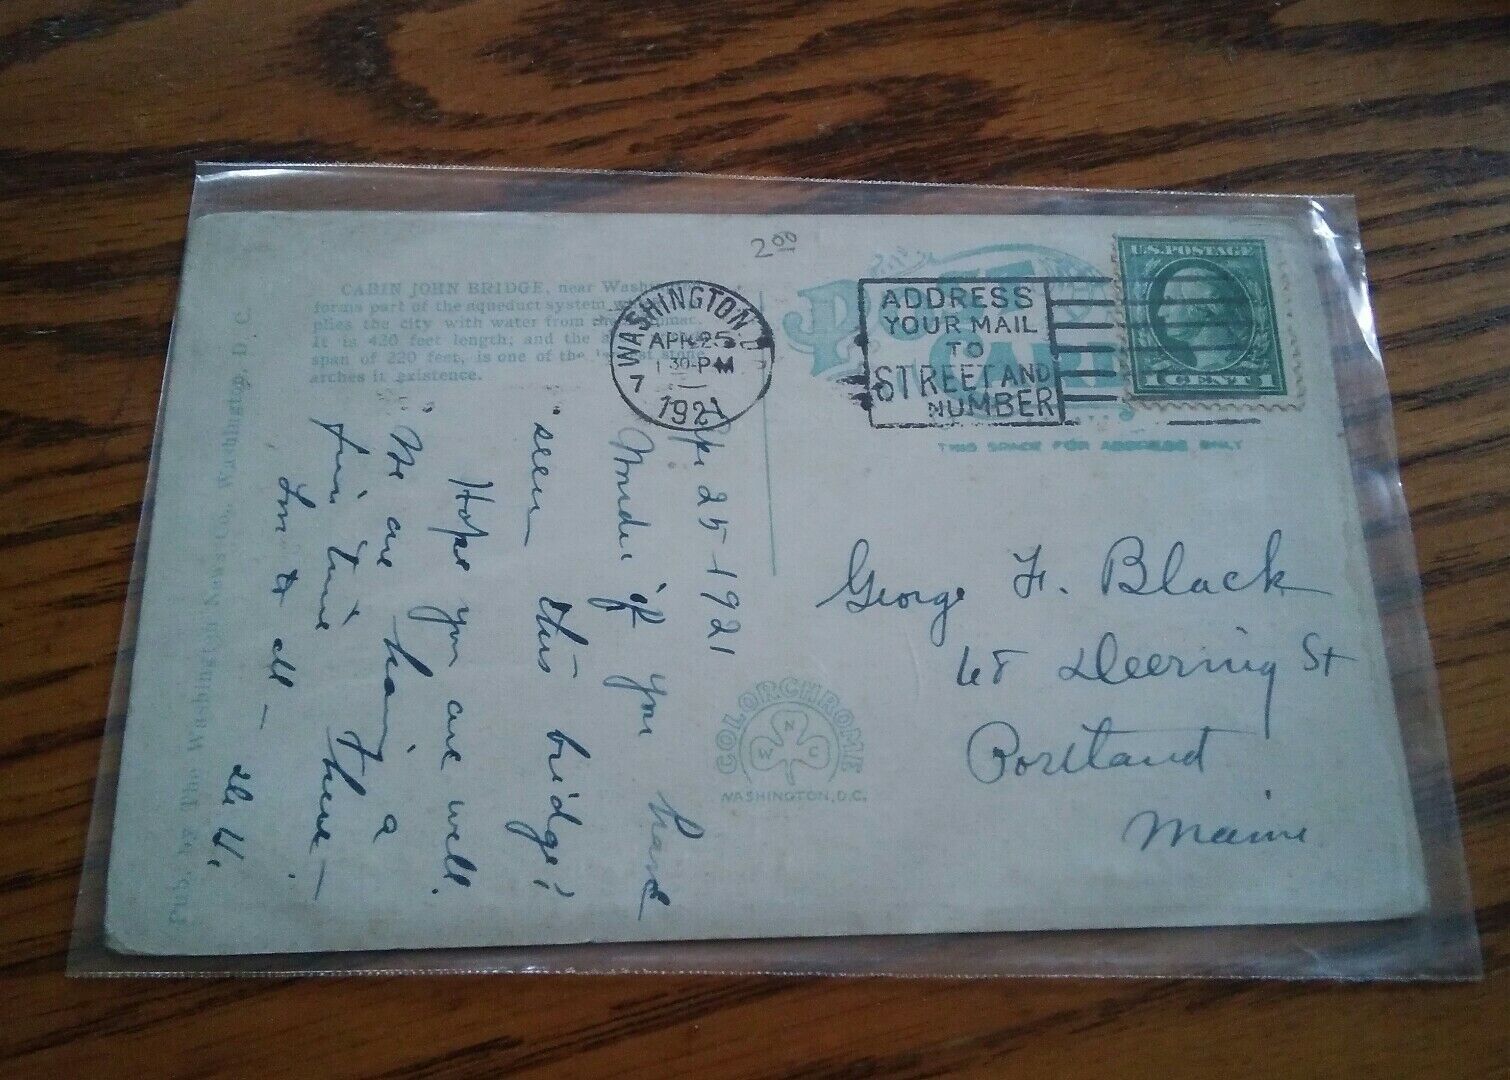 2 00
CABIN JOHN BRIDGE, near Wash
forms part of the aqueduct system
plies the city with water from
It is 420 feet length; and the
span of 220 feet, is one of the
arches in existence.
WASHINGTON, D.
APR 25
1 30-PM
7
1921
ADDRESS
YOUR MAIL
TO
STREET AND
NUMBER
POST CARD
THIS SPACE FOR ADDRESS ONLY
U.S. POSTAGE
1 CENT 1
Apr 25-1921
Wonder if you have
seen this bridge?
Hope you are well.
We are having a
fine time here -
Love to all -
George F. Black
68 Deering St
Portland
Maine
COLORCHROME
W N C
WASHINGTON, D.C.
Pub. by The Washington News Co., Washington, D. C.